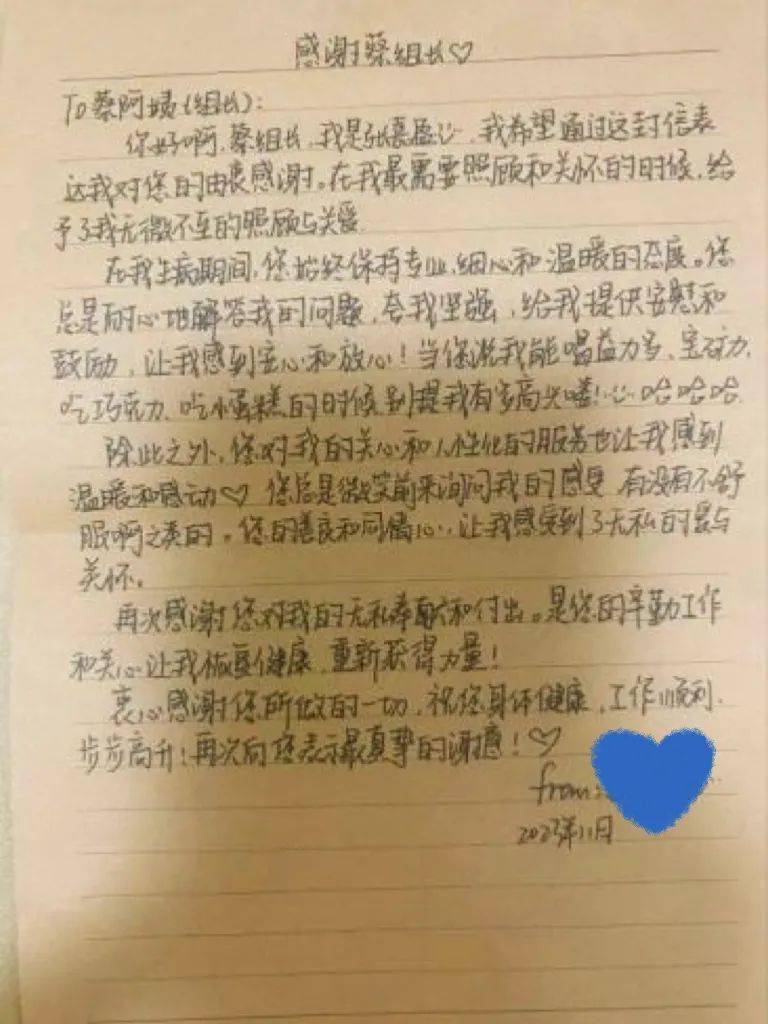 感谢蔡组长♡
To 蔡阿姨(组长):
你好啊,蔡组长,我是张熹盈·͜·,我希望通过这封信表
达我对您的由衷感谢。在我最需要照顾和关怀的时候,给
予了我无微不至的照顾与关爱.
在我生病期间,您始终保持专业,细心和温暖的态度。您
总是耐心地解答我的问题,夸我坚强,给我提供安慰和
鼓励,让我感到安心和放心!当您说我能喝益力多、宝矿力、
吃巧克力、吃小蛋糕的时候别提我有多高兴喽!·͜·哈哈哈.
除此之外,您对我的关心和人性化的服务也让我感到
温暖和感动♡ 您总是微笑前来询问我的感受,有没有不舒
服啊之类的。您的善良和同情心·͜·让我感受到了无私的爱与
关怀。
再次感谢您对我的无私奉献和付出。是您的辛勤工作
和关心让我恢复健康,重新获得力量!
衷心感谢您所做的一切,祝您身体健康,工作顺利,
步步高升!再次向您表示最真挚的谢意!♡
from:
2023年11月